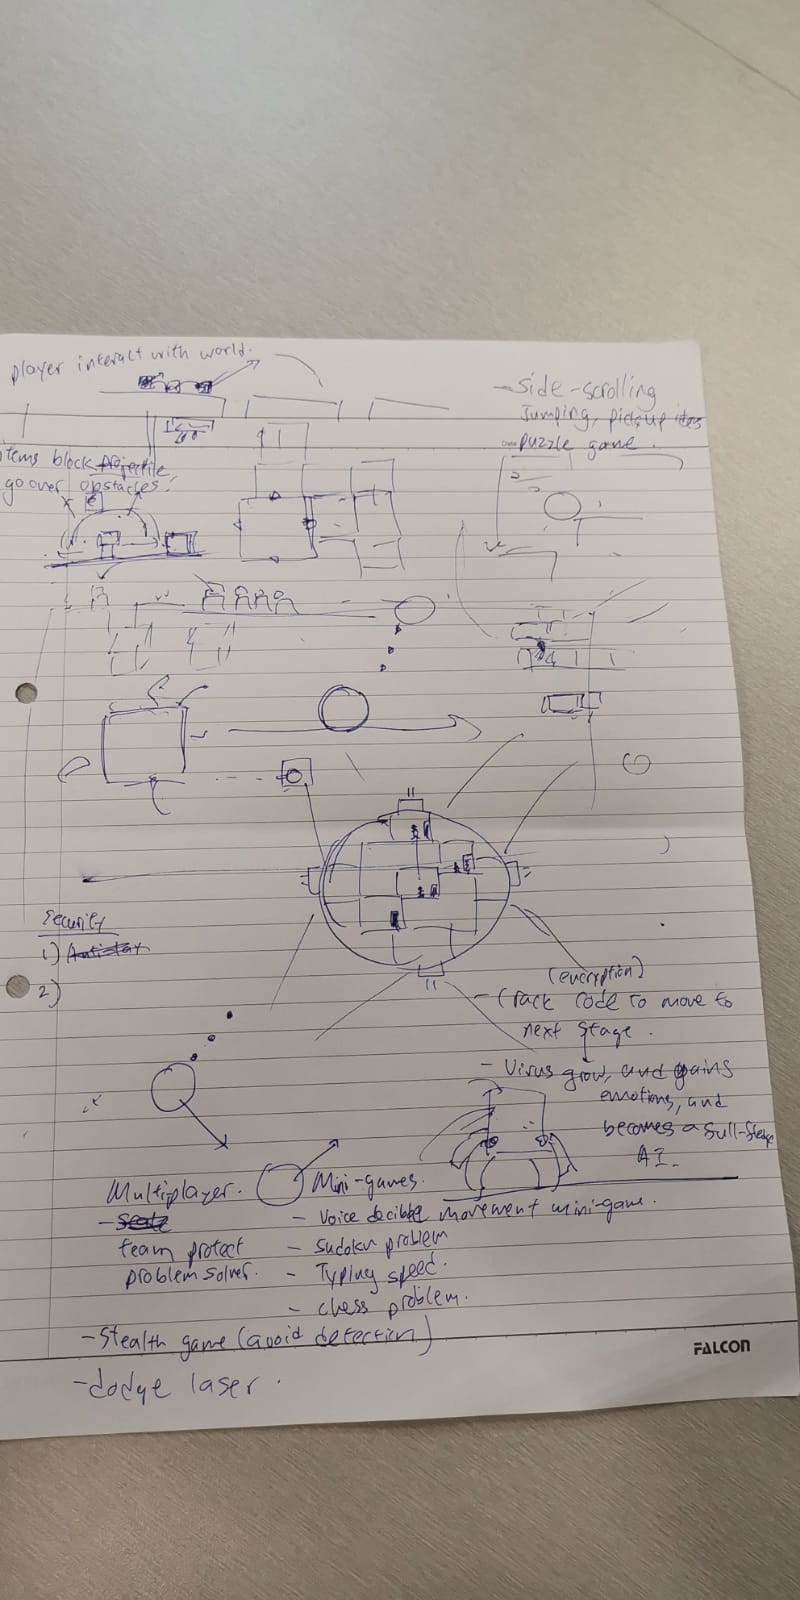 player interact with world.
- side-scrolling
Jumping, pickup items
puzzle game.
items block projectile
go over obstacles!
Security
1)
2)
(encryption)
- Crack code to move to
next stage.
- Virus grow, and gains
emotions, and
becomes a full-fledge
AI.
Multiplayer.
team protect
problem solver.
Mini-games.
- Voice decible movement mini-game.
- Sudoku problem
- Typing speed.
- chess problem.
- Stealth game (avoid detection)
- dodge laser.
FALCON